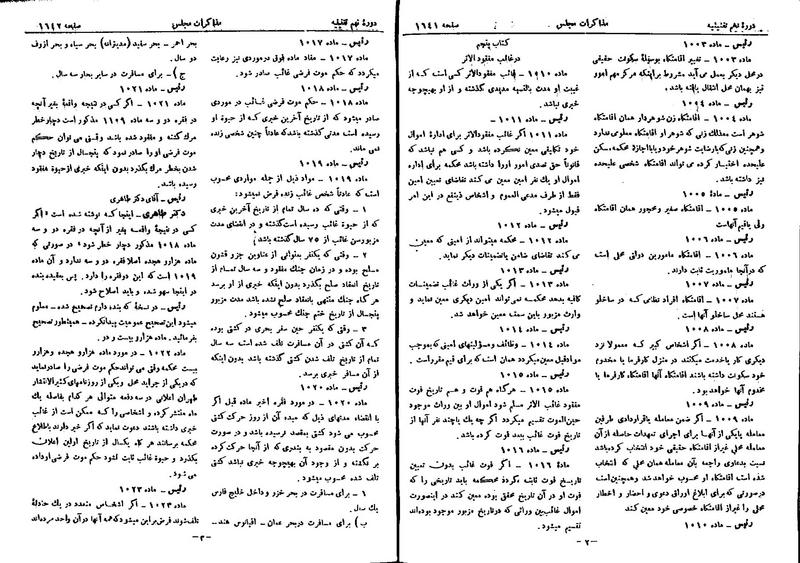 دورهٔ نهم تقنینیه مذاکرات مجلس صفحه ۱۶٤۱
رئیس – ماده ۱۰۰۳
ماده ۱۰۰۳ – تغییر اقامتگاه بوسیلهٔ سکونت حقیقی
در محل دیگر بعمل می آید مشروط بر اینکه مرکز مهم امور
نیز بهمان محل انتقال یافته باشد.
رئیس – ماده ۱۰۰٤
ماده ۱۰۰٤ – اقامتگاه زن شوهردار همان اقامتگاه
شوهر است معذلك زنی که شوهر او اقامتگاه معلومی ندارد
و همچنین زنی که با رضایت شوهر خود و یا با اجازهٔ محکمه، مسکن
علیحده اختیار کرده می تواند اقامتگاه شخصی علیحده
نیز داشته باشد.
رئیس – مادهٔ ۱۰۰۵
ماده ۱۰۰۵ – اقامتگاه صغیر و محجور همان اقامتگاه
ولی یا قیم آنهاست
رئیس – ماده ۱۰۰٦
ماده ۱۰۰٦ – اقامتگاه مامورین دولتی محلی است
که در آنجا ماموریت ثابت دارند.
رئیس – ماده ۱۰۰۷
ماده ۱۰۰۷ – اقامتگاه افراد نظامی که در ساخلو
هستند محل ساخلو آنها است.
رئیس – ماده ۱۰۰۸
ماده ۱۰۰۸ – اگر اشخاص کبیر که معمولا نزد
دیگری کار یا خدمت میکنند در منزل کارفرما یا مخدوم
خود سکونت داشته باشند اقامتگاه آنها اقامتگاه کارفرما یا
مخدوم آنها خواهد بود.
رئیس – ماده ۱۰۰۹
ماده ۱۰۰۹ – اگر ضمن معامله یا قراردادی طرفین
معامله یا یکی از آنها برای اجرای تعهدات حاصله از آن
معامله محلی غیر از اقامتگاه حقیقی خود انتخاب کرده باشد
نسبت بدعاوی راجعه بآن معامله همان محلی که انتخاب
شده است اقامتگاه او محسوب خواهد شد و همچنین است
در صورتی که برای ابلاغ اوراق دعوی و احضار و اخطار
محلی را غیر از اقامتگاه خصوصی خود معین کند
رئیس – ماده ۱۰۱۰
کتاب پنجم
در غائب مفقود الاثر
ماده ۱۰۱۰ – غائب مفقودالاثر کسی است که از
غیبت او مدت بالنسبه مدیدی گذشته و از او بهیچوجه
خبری نباشد.
رئیس – ماده ۱۰۱۱
ماده ۱۰۱۱ – اگر غائب مفقودالاثر برای ادارهٔ اموال
خود تکلیفی معین نکرده باشد و کسی هم نباشد که
قانوناً حق تصدی امور او را داشته باشد محکمه برای اداره
اموال او یك نفر امین معین می کند تقاضای تعیین امین
فقط از طرف مدعی العموم و اشخاص ذینفع در این امر
قبول میشود.
رئیس – ماده ۱۰۱۲
ماده ۱۰۱۲ – محکمه میتواند از امینی که معین
می کند تقاضای ضامن یا تضمینات دیگر نماید.
رئیس – ماده ۱۰۱۳
ماده ۱۰۱۳ – اگر یکی از وراث غائب تضمینات
کافیه بدهد محکمه نمی تواند امین دیگری معین نماید و
وارث مزبور باین سمت معین خواهد شد.
رئیس – ماده ۱۰۱٤
ماده ۱۰۱٤ – وظائف و مسؤلیتهای امینی که بموجب
مواد قبل معین میگردد همان است که برای قیم مقرر است.
رئیس – ماده ۱۰۱۵
ماده ۱۰۱۵ – هرگاه هم فوت و هم تاریخ فوت
مفقود غائب الاثر مسلم شود اموال او بین وراث موجود
حین الموت تقسیم میگردد اگر چه یك یا چند نفر آنها از
تاریخ فوت غائب ببعد فوت کرده باشد.
رئیس – ماده ۱۰۱٦
ماده ۱۰۱٦ – اگر فوت غائب بدون تعیین
تاریخ فوت ثابت گردد محکمه باید تاریخی را که
فوت او در آن تاریخ محقق بوده معین کند در اینصورت
اموال غائب بین وراثی که در تاریخ مزبور موجود بوده اند
تقسیم میشود.
–۲–
دورهٔ نهم تقنینیه مذاکرات مجلس صفحه ۱٦٤۲
رئیس – ماده ۱۰۱۷
ماده ۱۰۱۷ – مفاد ماده فوق در موردی نیز رعایت
میگردد که حکم موت فرضی غائب صادر شود.
رئیس – ماده ۱۰۱۸
ماده ۱۰۱۸ – حکم موت فرضی غائب در موردی
صادر میشود که از تاریخ آخرین خبری که از حیوة او
رسیده است مدتی گذشته باشد که عادتاً چنین شخصی زنده
نمی ماند.
رئیس – ماده ۱۰۱۹
ماده ۱۰۱۹ – مواد ذیل از جمله مواردی محسوب
است که عادتاً شخص غائب زنده فرض نمیشود:
۱ – وقتی که ده سال تمام از تاریخ آخرین خبری
که از حیوة غائب رسیده است گذشته و در انقضای مدت
مزبور سن غائب از ۷۵ سال گذشته باشد؛
۲ – وقتی که یکنفر بعنوانی از عناوین جزو قشون
مسلح بوده و در زمان جنك مفقود و سه سال تمام از
تاریخ انعقاد صلح بگذرد بدون اینکه خبری از او برسد
هر گاه جنك منتهی بانعقاد صلح نشده باشد مدت مزبور
پنجسال از تاریخ ختم جنك محسوب میشود.
۳ – وقتی که یکنفر حین سفر بحری در کشتی بوده
که آن کشتی در آن مسافرت تلف شده است سه سال
تمام از تاریخ تلف شدن کشتی گذشته باشد بدون اینکه
از آن مسافر خبری برسد.
رئیس – ماده ۱۰۲۰
ماده ۱۰۲۰ – در مورد فقره اخیر ماده قبل اگر
با انقضاء مدتهای ذیل که مبدء آن از روز حرکت کشتی
محسوب می شود کشتی بمقصد نرسیده باشد و در صورت
حرکت بدون مقصود به بندری که از آنجا حرکت کرده
بر نگشته و از وجود آن بهیچوجه خبری نباشد کشتی
تلف شده محسوب میشود.
۱ – برای مسافرت در بحر خزر و داخل خلیج فارس
یك سال.
ب) – برای مسافرت در بحر عمان – اقیانوس هند–
بحر احمر – بحر سفید (مدیترانه) بحر سیاه و بحر ازوف
دو سال.
ج) – برای مسافرت در سایر بحار سه سال.
رئیس – ماده ۱۰۲۱
ماده ۱۰۲۱ – اگر کسی در نتیجه واقعهٔ بغیر آنچه
در فقره دو و سه ماده ۱۱۰۹ مذکور است دچار خطر
مرك گشته و مفقود شده باشد وقتی می توان حکم
موت فرضی او را صادر نمود که پنجسال از تاریخ دچار
شدن بخطر مرك بگذرد بدون اینکه خبری از حیوة مفقود
رسیده باشد.
رئیس – آقای دکتر طاهری
دکتر طاهری – اینجا که نوشته شده است «اگر
کسی در نتیجهٔ واقعه بغیر از آنچه در فقره دو و سه
ماده ۱۰۱۸ مذکور دچار خطر شود» در صورتی که
ماده هزار و هجده اصلا فقره دو و سه ندارد و آن ماده
۱۰۱۹ است که این دو فقره را دارد. پس بعقیده بنده
در اینجا سهو شده و باید اصلاح شود.
رئیس – در نسخهٔ که بنده دارم تصحیح شده – معلوم
میشود این تصحیح عمومیت پیدا نکرده – همینطور تصحیح
بفرمائید. ماده هزار و بیست و دو.
ماده ۱۰۲۲ – در مورد ماده هزار و هجده و هزار و
بیست محکمه وقتی می تواند حکم موت فرضی را صادر نماید
که در یکی از جراید محل و یکی از روزنامه های کثیرالانتشار
طهران اعلانی در سه دفعه متوالی هر کدام بفاصله یك
ماه منتشر کرده و اشخاصی را که ممکن است از غائب
خبری داشته باشند دعوت نماید که اگر خبر دارند باطلاع
محکمه برسانند هر گاه یکسال از تاریخ اولین اعلان
بگذرد و حیوة غائب ثابت نشود حکم موت فرضی او داده
می شود.
رئیس – ماده ۱۰۲۳
ماده ۱۰۲۳ – اگر اشخاص متعدد در یك حادثهٔ
تلف شوند فرض بر این میشود که همه آنها در آن واحد مرده اند
–۳–